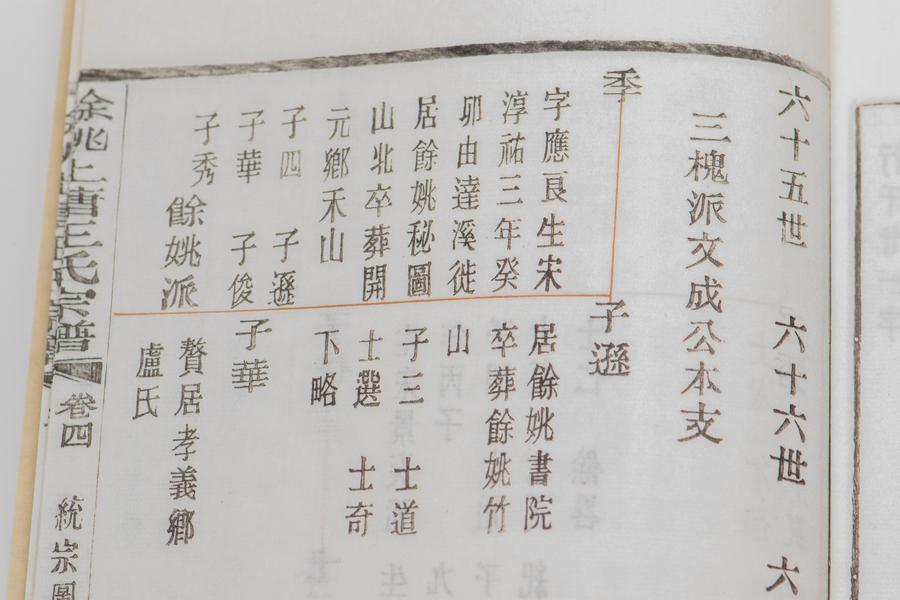 六十五世
六十六世
六
三槐派文成公本支
季
字應良生宋
淳祐三年癸
卯由達溪徙
居餘姚秘圖
山北卒葬開
元鄉禾山
子四 子遜
子華 子俊
子秀 餘姚派
子遜
居餘姚書院
卒葬餘姚竹
山
子三 士道
士選 士奇
下略
子華
贅居孝義鄉
盧氏
余姚上唐王氏宗譜
卷四
統宗圖